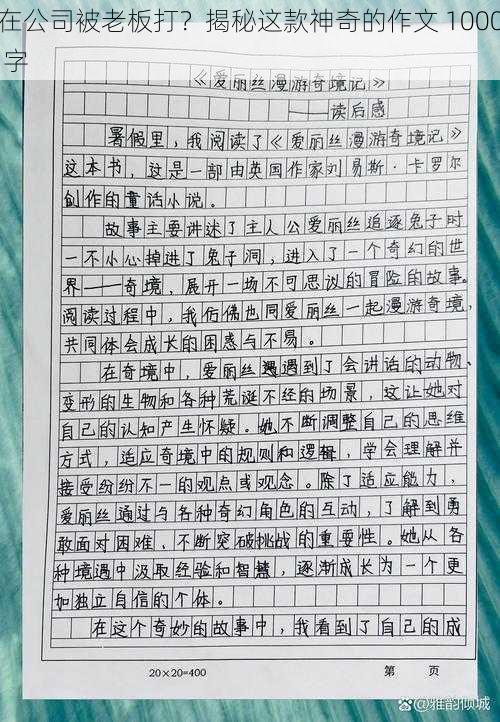 在公司被老板打？揭秘这款神奇的作文 1000
字
《爱丽丝漫游奇境记》
——读后感
暑假里，我阅读了《爱丽丝漫游奇境记》
这本书，这是一部由英国作家刘易斯·卡罗尔
创作的童话小说。
故事主要讲述了主人公爱丽丝追逐兔子时
一不小心掉进了兔子洞，进入了一个奇幻的世
界——奇境，展开一场不可思议的冒险的故事。
阅读过程中，我仿佛也同爱丽丝一起漫游奇境，
共同体会成长的困惑与不易。
在奇境中，爱丽丝遇遇到了会讲话的动物、
变形的生物和各种荒诞不经的场景，这让她对
自己的认知产生怀疑。她不断调整自己的思维
方式，适应奇境中的规则和逻辑，学会理解并
接受纷纷不一的观点或观念。除了适应能力，
爱丽丝通过与各种奇幻角色的互动，了解到勇
敢面对困难、不断突破挑战的重要性。她从各
种境遇中汲取经验和智慧，逐渐成长为一个更
加独立自信的个体。
在这个奇妙的故事中，我看到了自己的成
20×20=400 第 页
@雅韵倾城